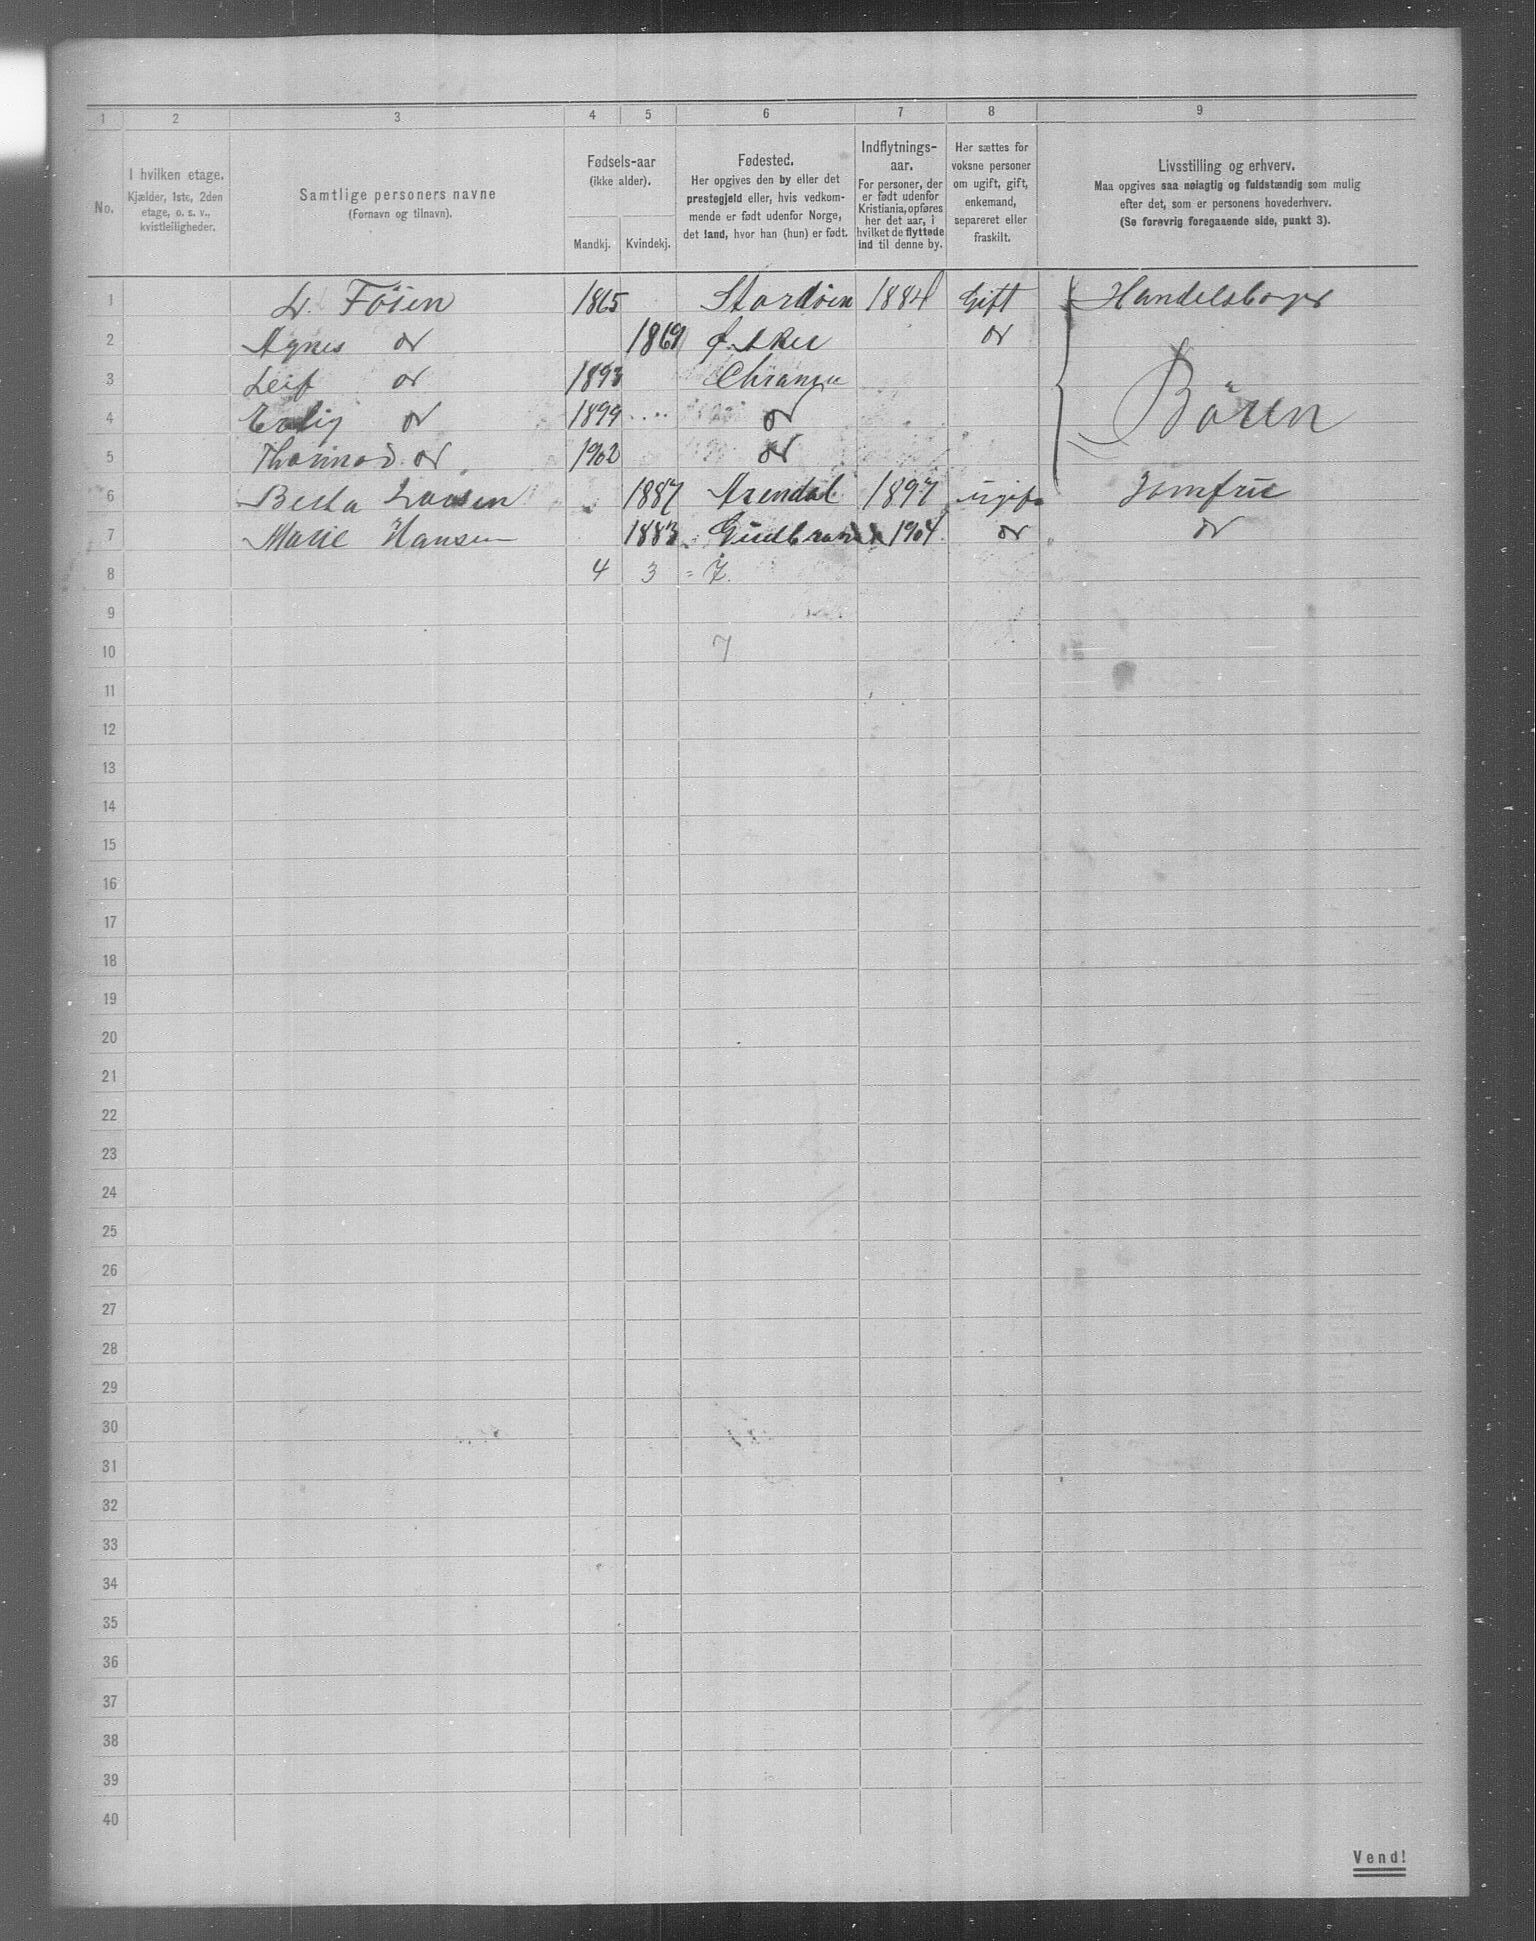 1 2 3 4 5 6 7 8 9
No.
I hvilken etage.
Kjælder, 1ste, 2den
etage, o. s. v.,
kvistleiligheder.
Samtlige personers navne
(Fornavn og tilnavn).
Fødsels-aar
(ikke alder).
Mandkj. Kvindekj.
Fødested.
Her opgives den by eller det
prestegjeld eller, hvis vedkom-
mende er født udenfor Norge,
det land, hvor han (hun) er født.
Indflytnings-
aar.
For personer, der
er født udenfor
Kristiania, opføres
her det aar, i
hvilket de flyttede
ind til denne by.
Her sættes for
voksne personer
om ugift, gift,
enkemand,
separeret eller
fraskilt.
Livsstilling og erhverv.
Maa opgives saa nøiagtig og fuldstændig som mulig
efter det, som er personens hovederhverv.
(Se forøvrig foregaaende side, punkt 3).
1 L. Föien 1865 Stordöen 1884 Gift Handelsborger
2 Agnes do 1869 Ø. Aker do
3 Leif do 1893 Bören
4 do 1899 do
5 do 1902 do
6 1887 Arendal 1897 ugift Jomfru
7 Marie Hansen 1883 1904 do do
8 4 3 = 7.
9
10 7
11
12
13
14
15
16
17
18
19
20
21
22
23
24
25
26
27
28
29
30
31
32
33
34
35
36
37
38
39
40
Vend!